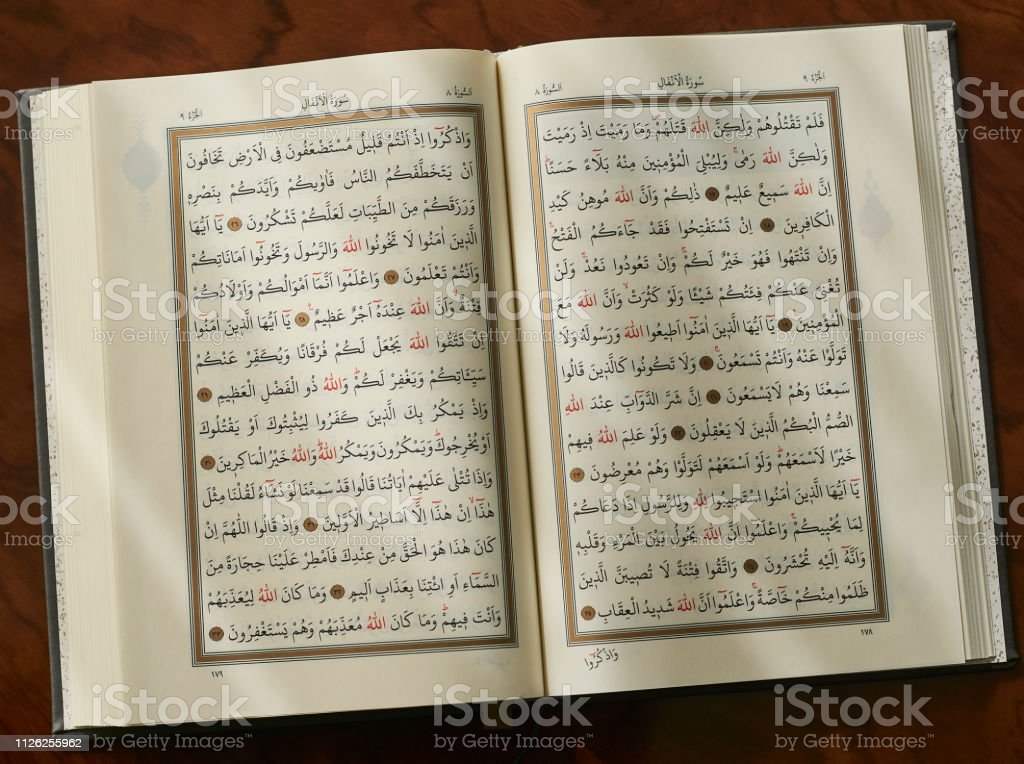 الجزء ٩ سورة الأنفال السورة ٨
فَلَمْ تَقْتُلُوهُمْ وَلٰكِنَّ اللّٰهَ قَتَلَهُمْ وَمَا رَمَيْتَ اِذْ رَمَيْتَ
وَلٰكِنَّ اللّٰهَ رَمٰى وَلِيُبْلِيَ الْمُؤْمِنِينَ مِنْهُ بَلَٓاءً حَسَنًا
اِنَّ اللّٰهَ سَمِيعٌ عَلِيمٌ ١٧ ذٰلِكُمْ وَاَنَّ اللّٰهَ مُوهِنُ كَيْدِ
الْكَافِرِينَ ١٨ اِنْ تَسْتَفْتِحُوا فَقَدْ جَٓاءَكُمُ الْفَتْحُ
وَاِنْ تَنْتَهُوا فَهُوَ خَيْرٌ لَكُمْ وَاِنْ تَعُودُوا نَعُدْ وَلَنْ
تُغْنِيَ عَنْكُمْ فِئَتُكُمْ شَيْـًٔا وَلَوْ كَثُرَتْ وَاَنَّ اللّٰهَ مَعَ
الْمُؤْمِنِينَ ١٩ يَٓا اَيُّهَا الَّذِينَ اٰمَنُٓوا اَطِيعُوا اللّٰهَ وَرَسُولَهُ وَلَا
تَوَلَّوْا عَنْهُ وَاَنْتُمْ تَسْمَعُونَ ٢٠ وَلَا تَكُونُوا كَالَّذِينَ قَالُوا
سَمِعْنَا وَهُمْ لَا يَسْمَعُونَ ٢١ اِنَّ شَرَّ الدَّوَٓابِّ عِنْدَ اللّٰهِ
الصُّمُّ الْبُكْمُ الَّذِينَ لَا يَعْقِلُونَ ٢٢ وَلَوْ عَلِمَ اللّٰهُ فِيهِمْ
خَيْرًا لَاَسْمَعَهُمْ وَلَوْ اَسْمَعَهُمْ لَتَوَلَّوْا وَهُمْ مُعْرِضُونَ ٢٣
يَٓا اَيُّهَا الَّذِينَ اٰمَنُوا اسْتَجِيبُوا لِلّٰهِ وَلِلرَّسُولِ اِذَا دَعَاكُمْ
لِمَا يُحْيِيكُمْ وَاعْلَمُٓوا اَنَّ اللّٰهَ يَحُولُ بَيْنَ الْمَرْءِ وَقَلْبِهِ
وَاَنَّهُٓ اِلَيْهِ تُحْشَرُونَ ٢٤ وَاتَّقُوا فِتْنَةً لَا تُصِيبَنَّ الَّذِينَ
ظَلَمُوا مِنْكُمْ خَٓاصَّةً وَاعْلَمُٓوا اَنَّ اللّٰهَ شَدِيدُ الْعِقَابِ ٢٥
وَاذْكُرُٓوا
١٧٨
السورة ٨ سورة الأنفال الجزء ٩
وَاذْكُرُٓوا اِذْ اَنْتُمْ قَلِيلٌ مُسْتَضْعَفُونَ فِي الْاَرْضِ تَخَافُونَ
اَنْ يَتَخَطَّفَكُمُ النَّاسُ فَاٰوٰيكُمْ وَاَيَّدَكُمْ بِنَصْرِهِ
وَرَزَقَكُمْ مِنَ الطَّيِّبَاتِ لَعَلَّكُمْ تَشْكُرُونَ ٢٦ يَٓا اَيُّهَا
الَّذِينَ اٰمَنُوا لَا تَخُونُوا اللّٰهَ وَالرَّسُولَ وَتَخُونُٓوا اَمَانَاتِكُمْ
وَاَنْتُمْ تَعْلَمُونَ ٢٧ وَاعْلَمُٓوا اَنَّمَٓا اَمْوَالُكُمْ وَاَوْلَادُكُمْ
فِتْنَةٌ وَاَنَّ اللّٰهَ عِنْدَهُٓ اَجْرٌ عَظِيمٌ ٢٨ يَٓا اَيُّهَا الَّذِينَ اٰمَنُٓوا
اِنْ تَتَّقُوا اللّٰهَ يَجْعَلْ لَكُمْ فُرْقَانًا وَيُكَفِّرْ عَنْكُمْ
سَيِّـَٔاتِكُمْ وَيَغْفِرْ لَكُمْ وَاللّٰهُ ذُو الْفَضْلِ الْعَظِيمِ ٢٩
وَاِذْ يَمْكُرُ بِكَ الَّذِينَ كَفَرُوا لِيُثْبِتُوكَ اَوْ يَقْتُلُوكَ
اَوْ يُخْرِجُوكَ وَيَمْكُرُونَ وَيَمْكُرُ اللّٰهُ وَاللّٰهُ خَيْرُ الْمَاكِرِينَ ٣٠
وَاِذَا تُتْلٰى عَلَيْهِمْ اٰيَاتُنَا قَالُوا قَدْ سَمِعْنَا لَوْ نَشَٓاءُ لَقُلْنَا مِثْلَ
هٰذَٓا اِنْ هٰذَٓا اِلَّٓا اَسَاطِيرُ الْاَوَّلِينَ ٣١ وَاِذْ قَالُوا اللّٰهُمَّ اِنْ
كَانَ هٰذَا هُوَ الْحَقَّ مِنْ عِنْدِكَ فَاَمْطِرْ عَلَيْنَا حِجَارَةً مِنَ
السَّمَٓاءِ اَوِ ائْتِنَا بِعَذَابٍ اَلِيمٍ ٣٢ وَمَا كَانَ اللّٰهُ لِيُعَذِّبَهُمْ
وَاَنْتَ فِيهِمْ وَمَا كَانَ اللّٰهُ مُعَذِّبَهُمْ وَهُمْ يَسْتَغْفِرُونَ ٣٣
١٧٩
iStock
by Getty Images™
1126255962